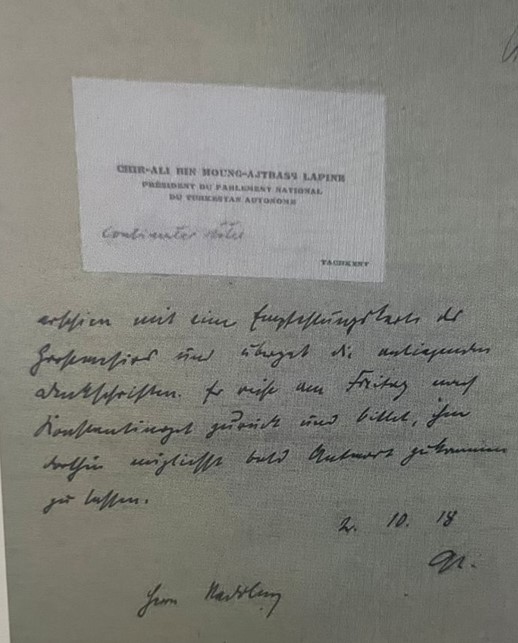 CHIR-ALI BIN MOUNG-AJTBASS LAPINE
PRÉSIDENT DU PARLEMENT NATIONAL
DU TURKESTAN AUTONOME
TACHKENT
erschien mit einer Empfehlungskarte des
Grosswesirs und übergab die anliegenden
Denkschriften. Er reise am Freitag nach
Konstantinopel zurück und bittet, ihm
dorthin möglichst bald Antwort zukommen
zu lassen.
2. 10. 18
Herrn